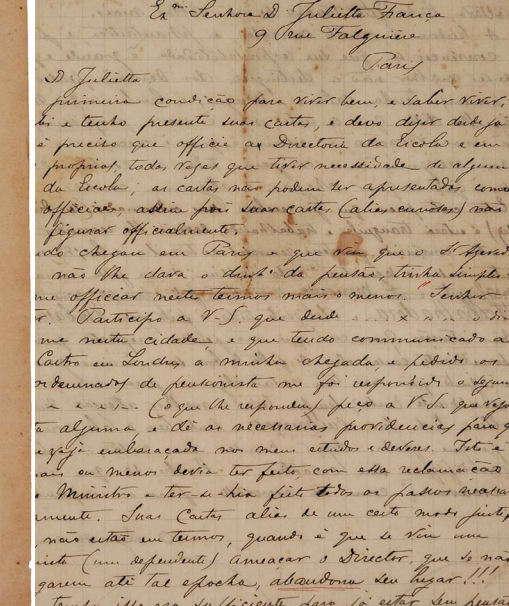 Exma Senhora D Julietta França
9 rue Falguière
Paris
D. Julietta
primeira condição para viver bem, e saber viver,
bi e tenho presente suas cartas, e devo dizer desde já
é preciso que officie a Directoria da Escola e em
proprios todas vezes que tiver necessidade de alguma
da Escola; as cartas não podem ser apresentadas como
officiaes, assim pois suas cartas (alias curiosas) não
figurar officialmente.
ndo chegou em Paris e que viu que o Sr Azeved
não lhe dava o dinhº da pensão, tinha simples
me officiar neste termos mais o menos. Senhor
r. Participo a V. S. que desde x
me nesta cidade e que tendo communicado a
Castro em Londres a minha chegada e pedido os
de pensionista me foi respondido o segui
(o que lhe responderam) peço a V. S. que veja
alguma e dê as necessarias providencias para q
seja embaraçada nos meus estudos e deveres. Isto é
ais ou menos devia ter feito com essa reclamação
Ministro e ter-se-hia feito todos os passos necessa
amente. Suas Cartas alias de um certo modo justas,
mais estão em termos, quando é que se viu um
(um dependente) ameaçar o Director, que se não
garem até tal epocha, abandona seu lugar!!!
isso era sufficiente para já estar sem pensão